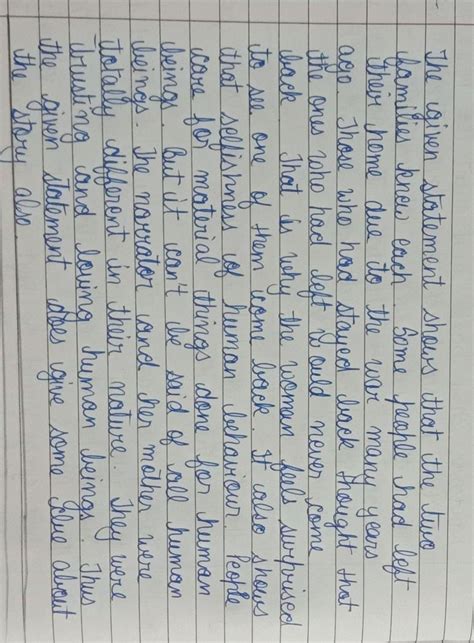 The given statement shows that the two
families knew each. Some people had left
their home due to the war many years
ago. Those who had stayed back thought that
the ones who had left would never come
back. That is why the women feels surprised
to see one of them come back. It also shows
that selfishness of human behaviour. People
care for material things done for human
being. But it can't be said of all human
beings. The narrator and her mother were
totally different in their nature. They were
trusting and loving human beings. Thus
the given statement does give some clue about
the story also.